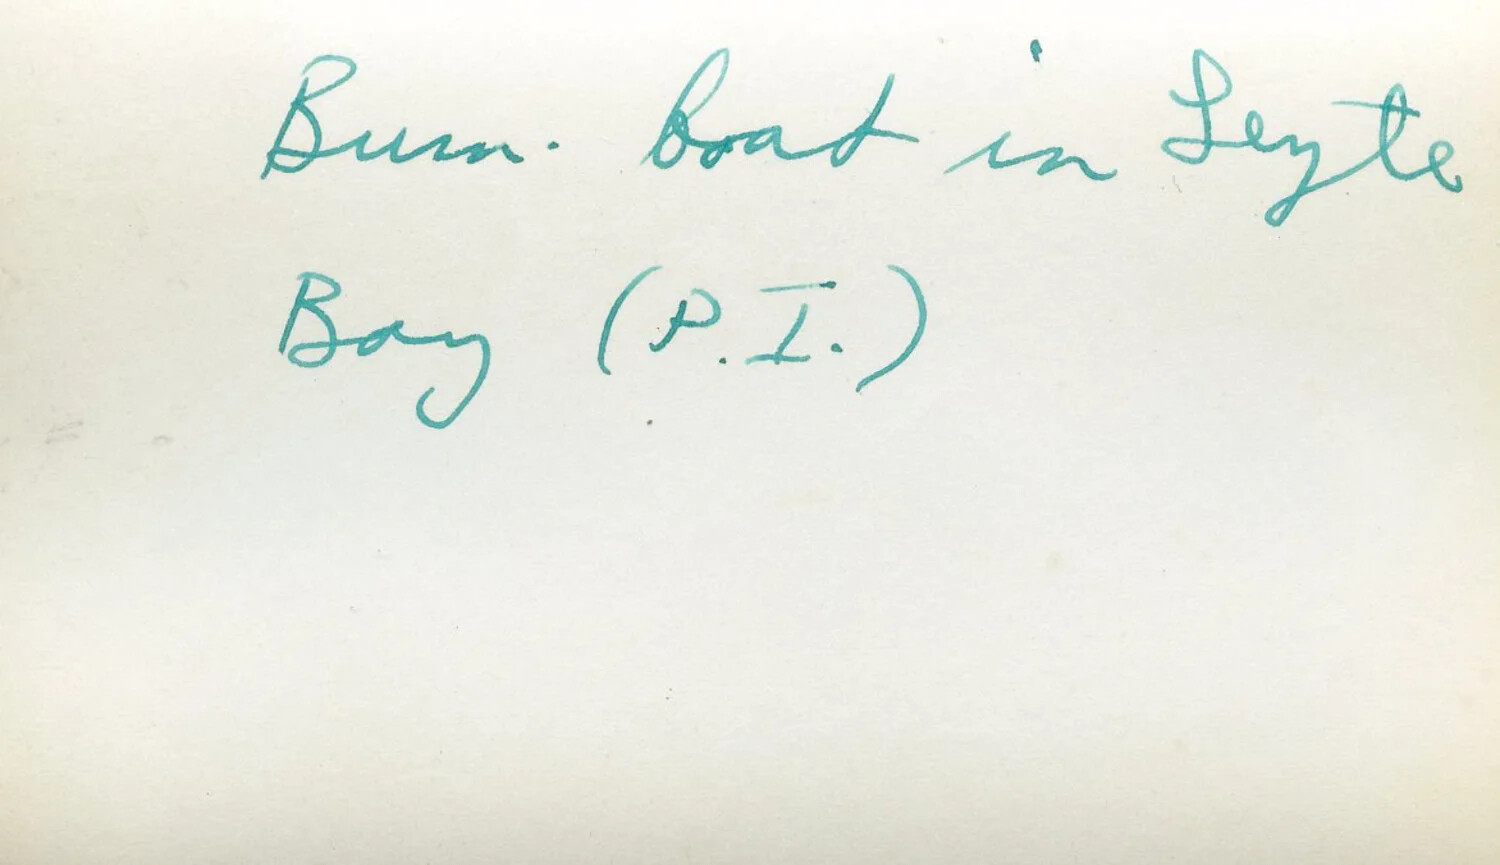 Bum. boat in Leyte
Bay (P.I.)